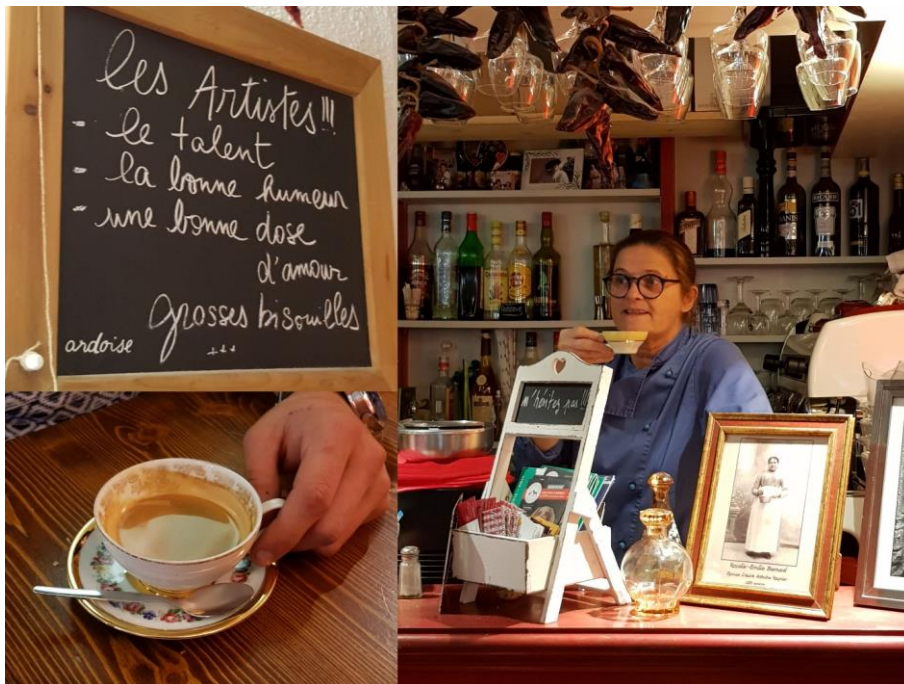 les Artistes!!!
- le talent
- la bonne humeur
- une bonne dose
d'amour
grosses bisouilles
+++
ardoise
n'hésitez pas !!!